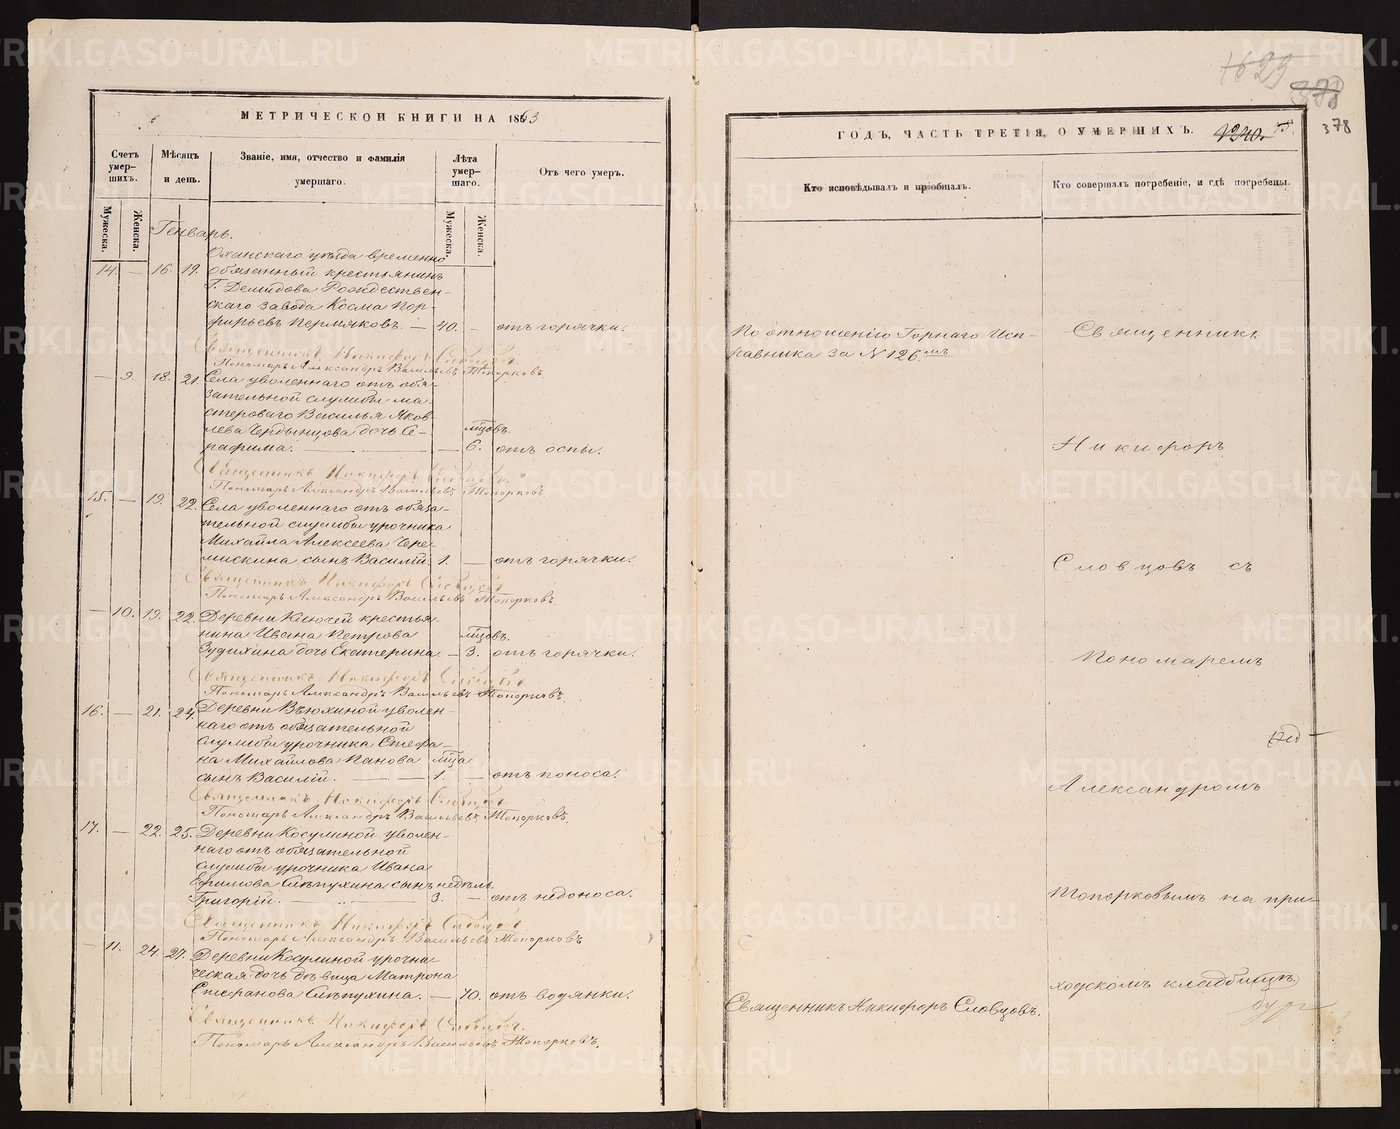 МЕТРИЧЕСКОЙ КНИГИ НА 1863
Счетъ умер-
шихъ.
Мѣсяцъ
и день.
Званіе, имя, отчество и фамилія
умершаго.
Лѣта
умер-
шаго.
Отъ чего умеръ.
Мужеска.
Женска.
Мужеска.
Женска.
Генварь.
Оханскаго уѣзда временно
14. — 16. 19. обязанный крестьянинъ
Г. Демидова Рождествен-
скаго завода Косма Пор-
фирьевъ Пермяковъ. — 40. — отъ горячки.
Священникъ Никифоръ Словцовъ
Пономарь Александръ Васильевъ Топорковъ.
— 9. 18. 21. Села уволеннаго отъ обя-
зательной службы ма-
стероваго Василья Яков-
лева Чердынцова дочь Се- мцовъ.
рафима. — 6. отъ оспы.
Священникъ Никифоръ Словцовъ
Пономарь Александръ Васильевъ Топорковъ.
15. — 19. 22. Села уволеннаго отъ обяза-
тельной службы урочника
Михайла Алексеева Чере-
мискина сынъ Василій. 1. — отъ горячки.
Священникъ Никифоръ Словцовъ
Пономарь Александръ Васильевъ Топорковъ.
— 10. 19. 22. Деревни Ключей крестья-
нина Ивана Петрова мцовъ.
дочь Екатерина. — 3. отъ горячки.
Священникъ Никифоръ Словцовъ
Пономарь Александръ Васильевъ Топорковъ
16. — 21. 24. Деревни Вьюхиной уволен-
наго отъ обязательной
службы урочника Стефа-
на Михайлова Панова мца
сынъ Василій. — 1. — отъ поноса.
Священникъ Никифоръ Словцовъ
Пономарь Александръ Васильевъ Топорковъ.
17. — 22. 25. Деревни Косулиной уволен-
наго отъ обязательной
службы урочника Ивана
Ефимова Слѣпухина сынъ недѣль.
Григорій. — 3. — отъ недоноса.
Священникъ Никифоръ Словцовъ
Пономарь Александръ Васильевъ Топорковъ
— 11. 24. 27. Деревни Косулиной урочни-
ческая дочь дѣвица Матрона
Стефанова Слѣпухина. — 70. отъ водянки.
Священникъ Никифоръ Словцовъ.
Пономарь Александръ Васильевъ Топорковъ.
1623
378
378
ГОДЪ, ЧАСТЬ ТРЕТІЯ, О УМЕРШИХЪ. 1240.
Кто исповѣдывалъ и пріобщалъ.
Кто совершалъ погребеніе, и гдѣ погребены.
По отношенію Горнаго Исп-
равника за № 126мъ
Священникъ
Никифоръ
Словцовъ съ
Пономаремъ
Александромъ
Топорковымъ на при-
ходскомъ кладбищѣ.
Священникъ Никифоръ Словцовъ.
METRIKI.GASO-URAL.RU